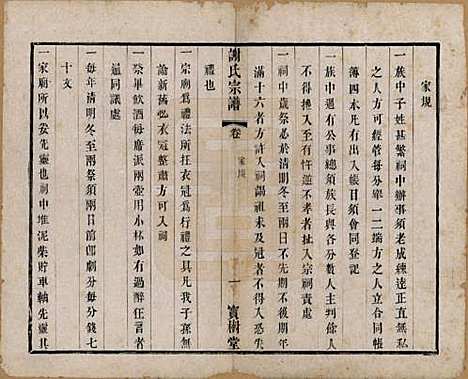 家規
一族中子姓甚繁祠中辦事須老成練達正直無私
之人方可經管每分舉一二端方之人立合同帳
簿四本凡有出入帳目須會同登記
一族中遇有公事總須族長與各分數人主判其餘人
不得攙入至有忤逆不孝者扯入宗祠責處
一祠中歲祭必於清明冬至兩日不先期不後期年
滿十六者方許入祠謁祖未及冠者不得入恐失
謝氏宗譜
卷
家規
一
寶樹堂
禮也
一宗廟爲禮法所在衣冠爲行禮之具凡我子孫無
論新舊衣冠整齊方可入祠
一祭畢飲酒每席派兩壺用小杯如有過醉狂言者
通同議處
一每年清明冬至兩祭須兩日前卽劇分每分錢七
十文
一家廟所以妥先靈也祠中堆泥柴貯車軸先靈其